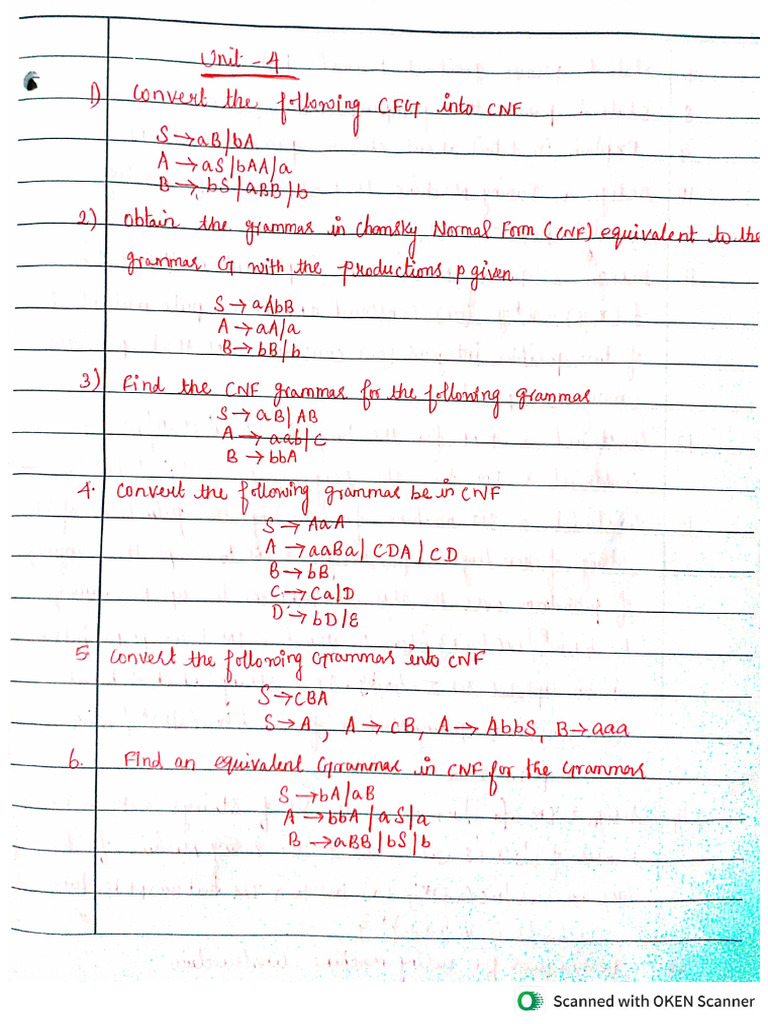 Unit - 4
1) Convert the following CFG into CNF
S → aB | bA
A → aS | bAA | a
B → bS | aBB | b
2) Obtain the grammar in Chomsky Normal Form (CNF) equivalent to the
grammar G with the productions p given
S → aAbB
A → aA | a
B → bB | b
3) Find the CNF grammar for the following grammar
S → aB | AB
A → aab | C
B → bbA
4. Convert the following grammar be in CNF
S → AaA
A → aaBa | CDA | CD
B → bB
C → Ca | D
D → bD | ε
5 Convert the following Grammar into CNF
S → CBA
S → A, A → cB, A → AbbS, B → aaa
6. Find an equivalent Grammar in CNF for the Grammar
S → bA | aB
A → bbA | aS | a
B → aBB | bS | b
Scanned with OKEN Scanner